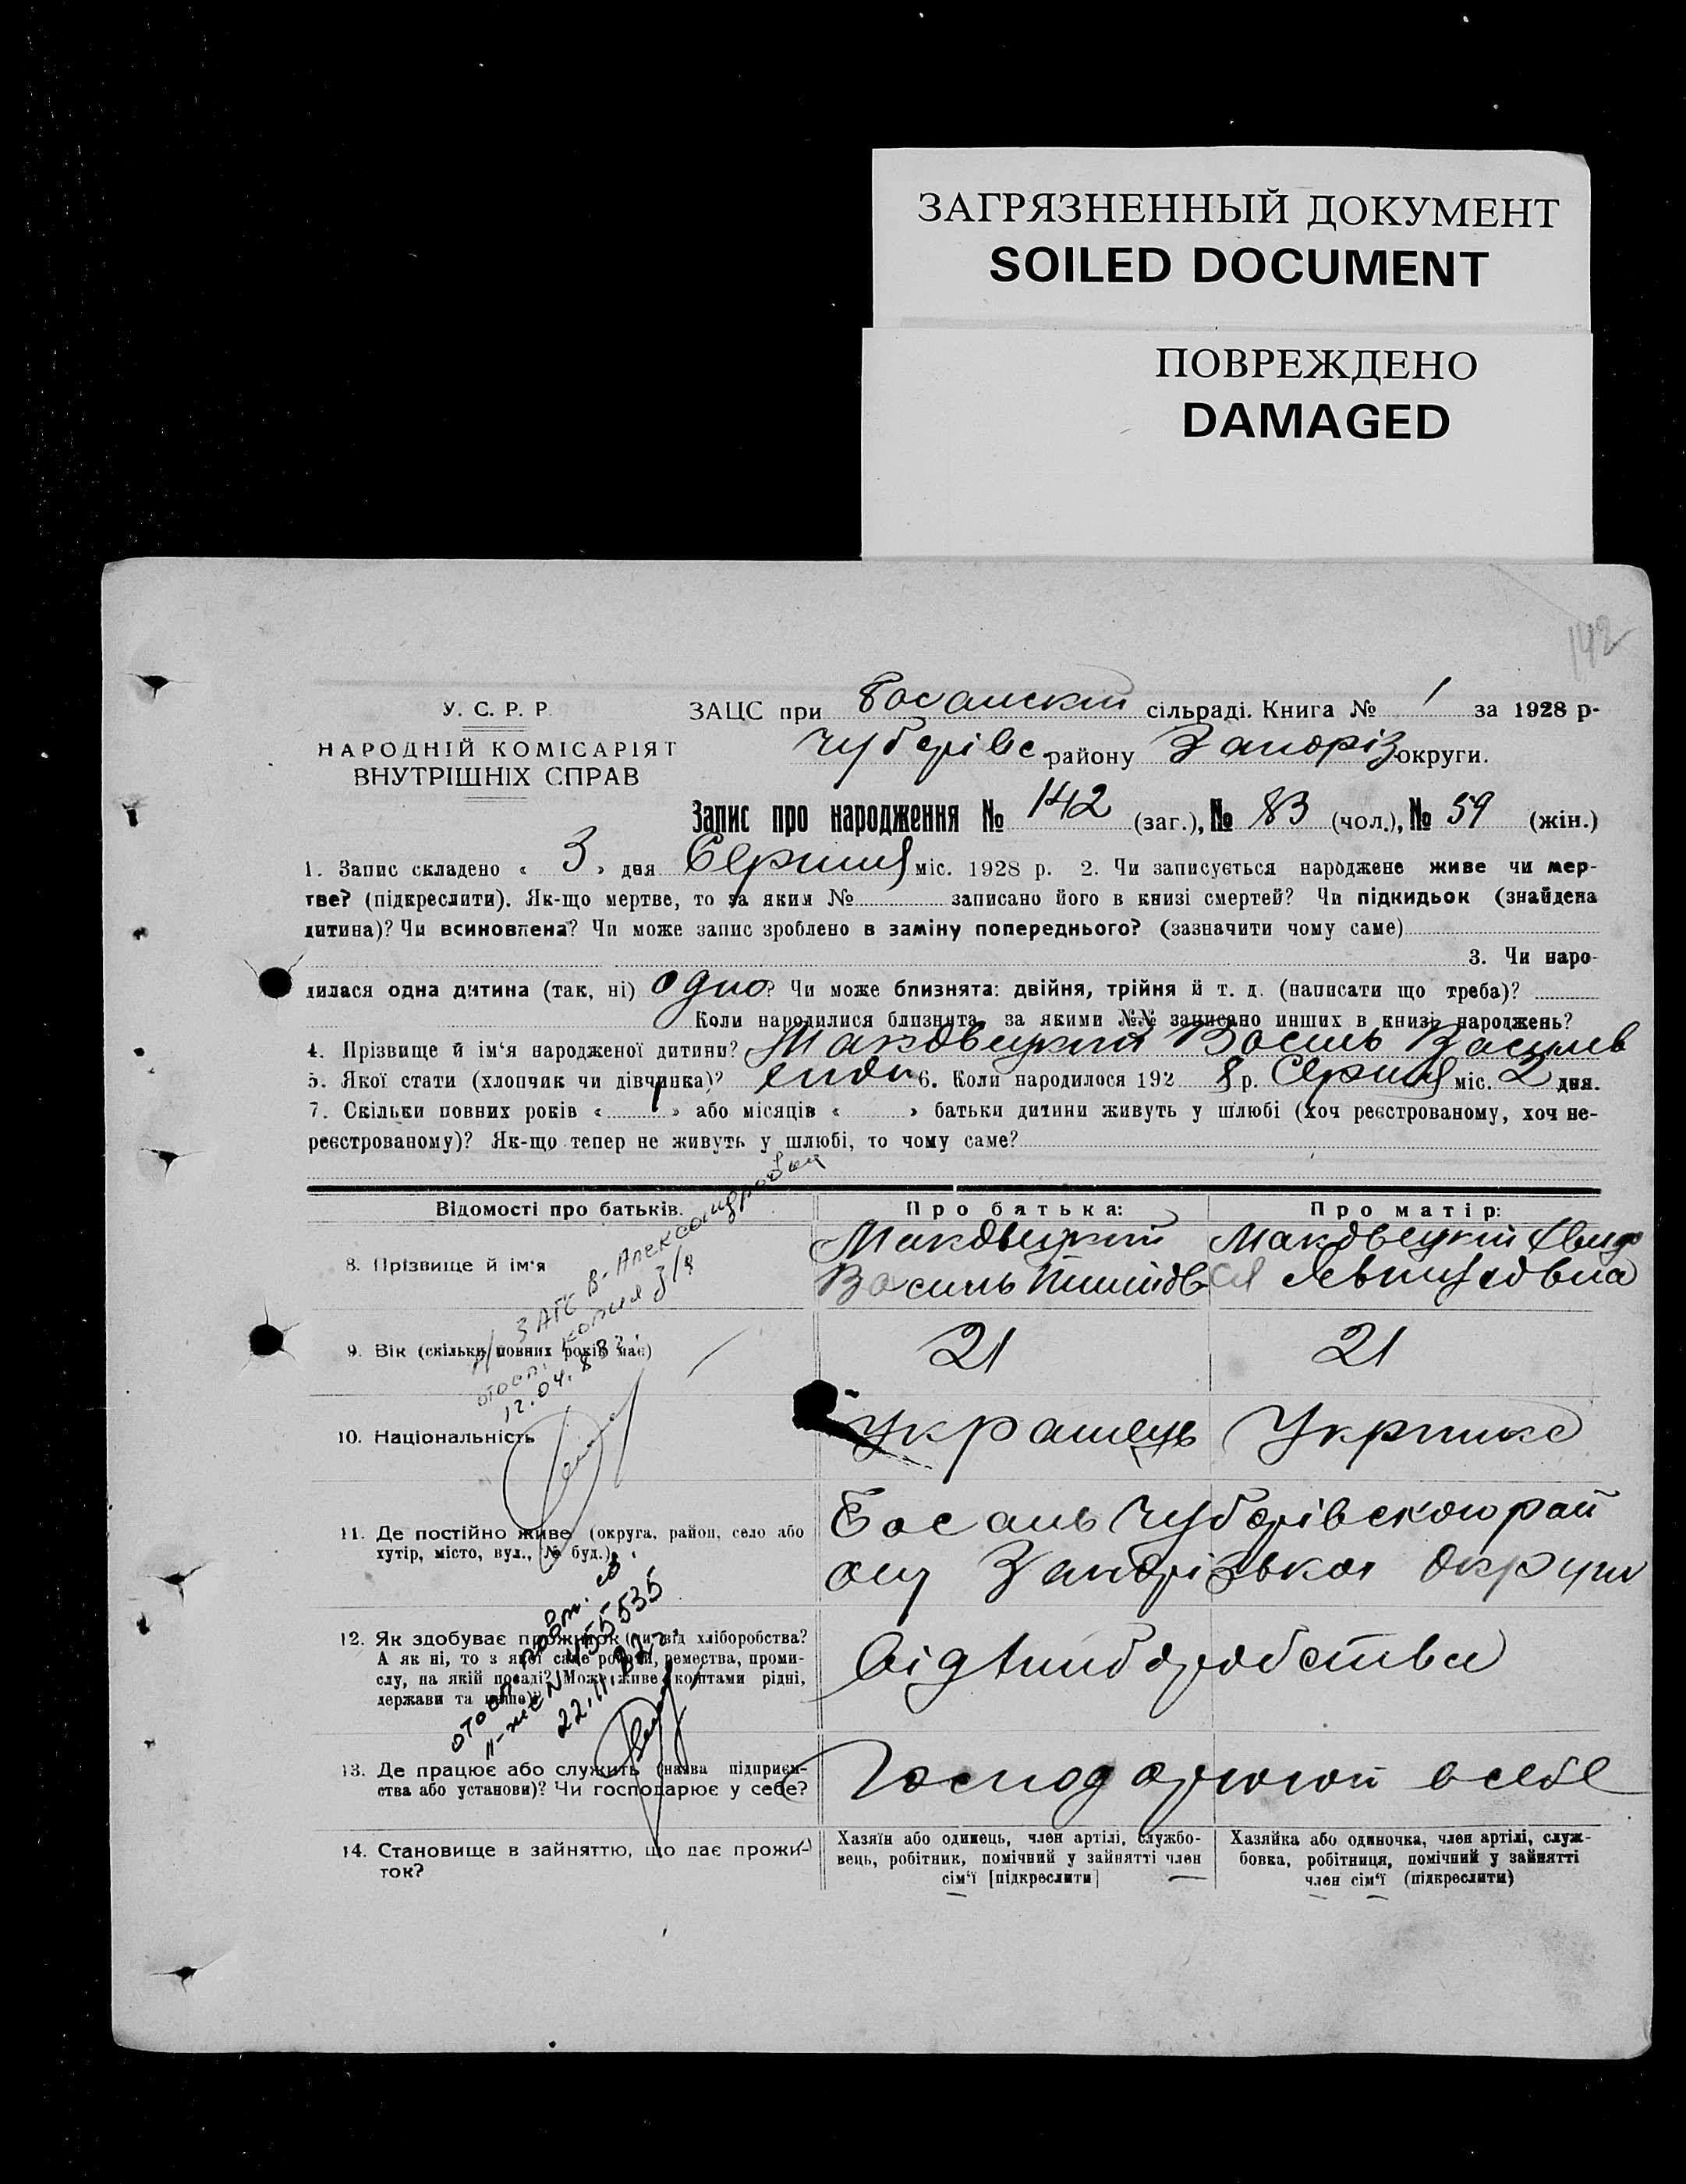 142
ЗАГРЯЗНЕННЫЙ ДОКУМЕНТ
SOILED DOCUMENT
ПОВРЕЖДЕНО
DAMAGED
У. С. Р. Р.
НАРОДНІЙ КОМІСАРІЯТ
ВНУТРІШНІХ СПРАВ
ЗАЦС при Босанскій сільраді. Книга № 1 за 1928 р-
Чубарівс району Запоріз округи.
Запис про народження № 142 (заг.), № 83 (чол.), № 59 (жін.)
1. Запис складено « 3 » дня Серпня міс. 1928 р. 2. Чи записується народжене живе чи мер-
тве? (підкреслити). Як-що мертве, то за яким № записано його в книзі смертей? Чи підкидьок (знайдена
дитина)? Чи всиновлена? Чи може запис зроблено в заміну попереднього? (зазначити чому саме)
3. Чи наро-
дилася одна дитина (так, ні) одно? Чи може близнята: двійня, трійня й т. д. (написати що треба)?
Коли народилися близнята, за якими №№ записано инших в книзі народжень?
4. Прізвище й ім‘я народженої дитини? Маковецкий Василь Васильв
5. Якої стати (хлопчик чи дівчинка)? 6. Коли народилося 192 8 р. Серпня міс. 2 дня.
7. Скільки повних років « 1 » або місяців « » батьки дитини живуть у шлюбі (хоч реєстрованому, хоч не-
реєстрованому)? Як-що тепер не живуть у шлюбі, то чому саме?
Відомості про батьків.
Про батька:
Про матір:
8. Прізвище й ім‘я
Маковецкий
Василь
Маковецкий
9. Вік (скільки повних років має)
21
21
10. Національність
Украинець
Укринке
11. Де постійно живе (округа, район, село або
хутір, місто, вул., № буд.)
Босань Чубарівського рай
ону Запорізькоі округи
12. Як здобуває прожиток (чи від хліборобства?
А як ні, то з якої саме роботи, ремества, проми-
слу, на якій посаді? Може живе коштами рідні,
держави та инше)?
від хліборобства
13. Де працює або служить (назва підприєм-
ства або установи)? Чи господарює у себе?
Господарюють в себе
14. Становище в зайняттю, що дає прожи-
ток?
Хазяїн або одинець, член артілі, службо-
вець, робітник, помічний у зайнятті член
сім‘ї [підкреслити]
Хазяйка або одиночка, член артілі, служ-
бовка, робітниця, помічний у зайнятті
член сім‘ї (підкреслити)
ЗАГС В-Александровки
копия
12.04.
N 455535
22.11